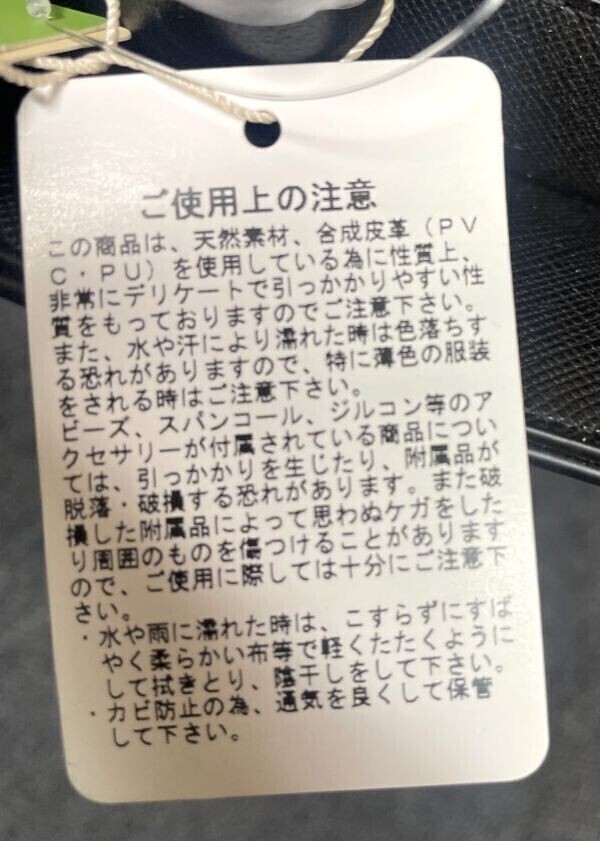 ご使用上の注意
この商品は、天然素材、合成皮革（ＰＶ
Ｃ・ＰＵ）を使用している為に性質上、
非常にデリケートで引っかかりやすい性
質をもっておりますのでご注意下さい。
また、水や汗により濡れた時は色落ちす
る恐れがありますので、特に薄色の服装
をされる時はご注意下さい。
ビーズ、スパンコール、ジルコン等のア
クセサリーが付属されている商品につい
ては、引っかかりを生じたり、付属品が
脱落・破損する恐れがあります。また破
損した付属品によって思わぬケガをした
り周囲のものを傷つけることがあります
ので、ご使用に際しては十分にご注意下
さい。
・水や雨に濡れた時は、こすらずにすば
やく柔らかい布等で軽くたたくように
して拭きとり、陰干しをして下さい。
・カビ防止の為、通気を良くして保管
して下さい。